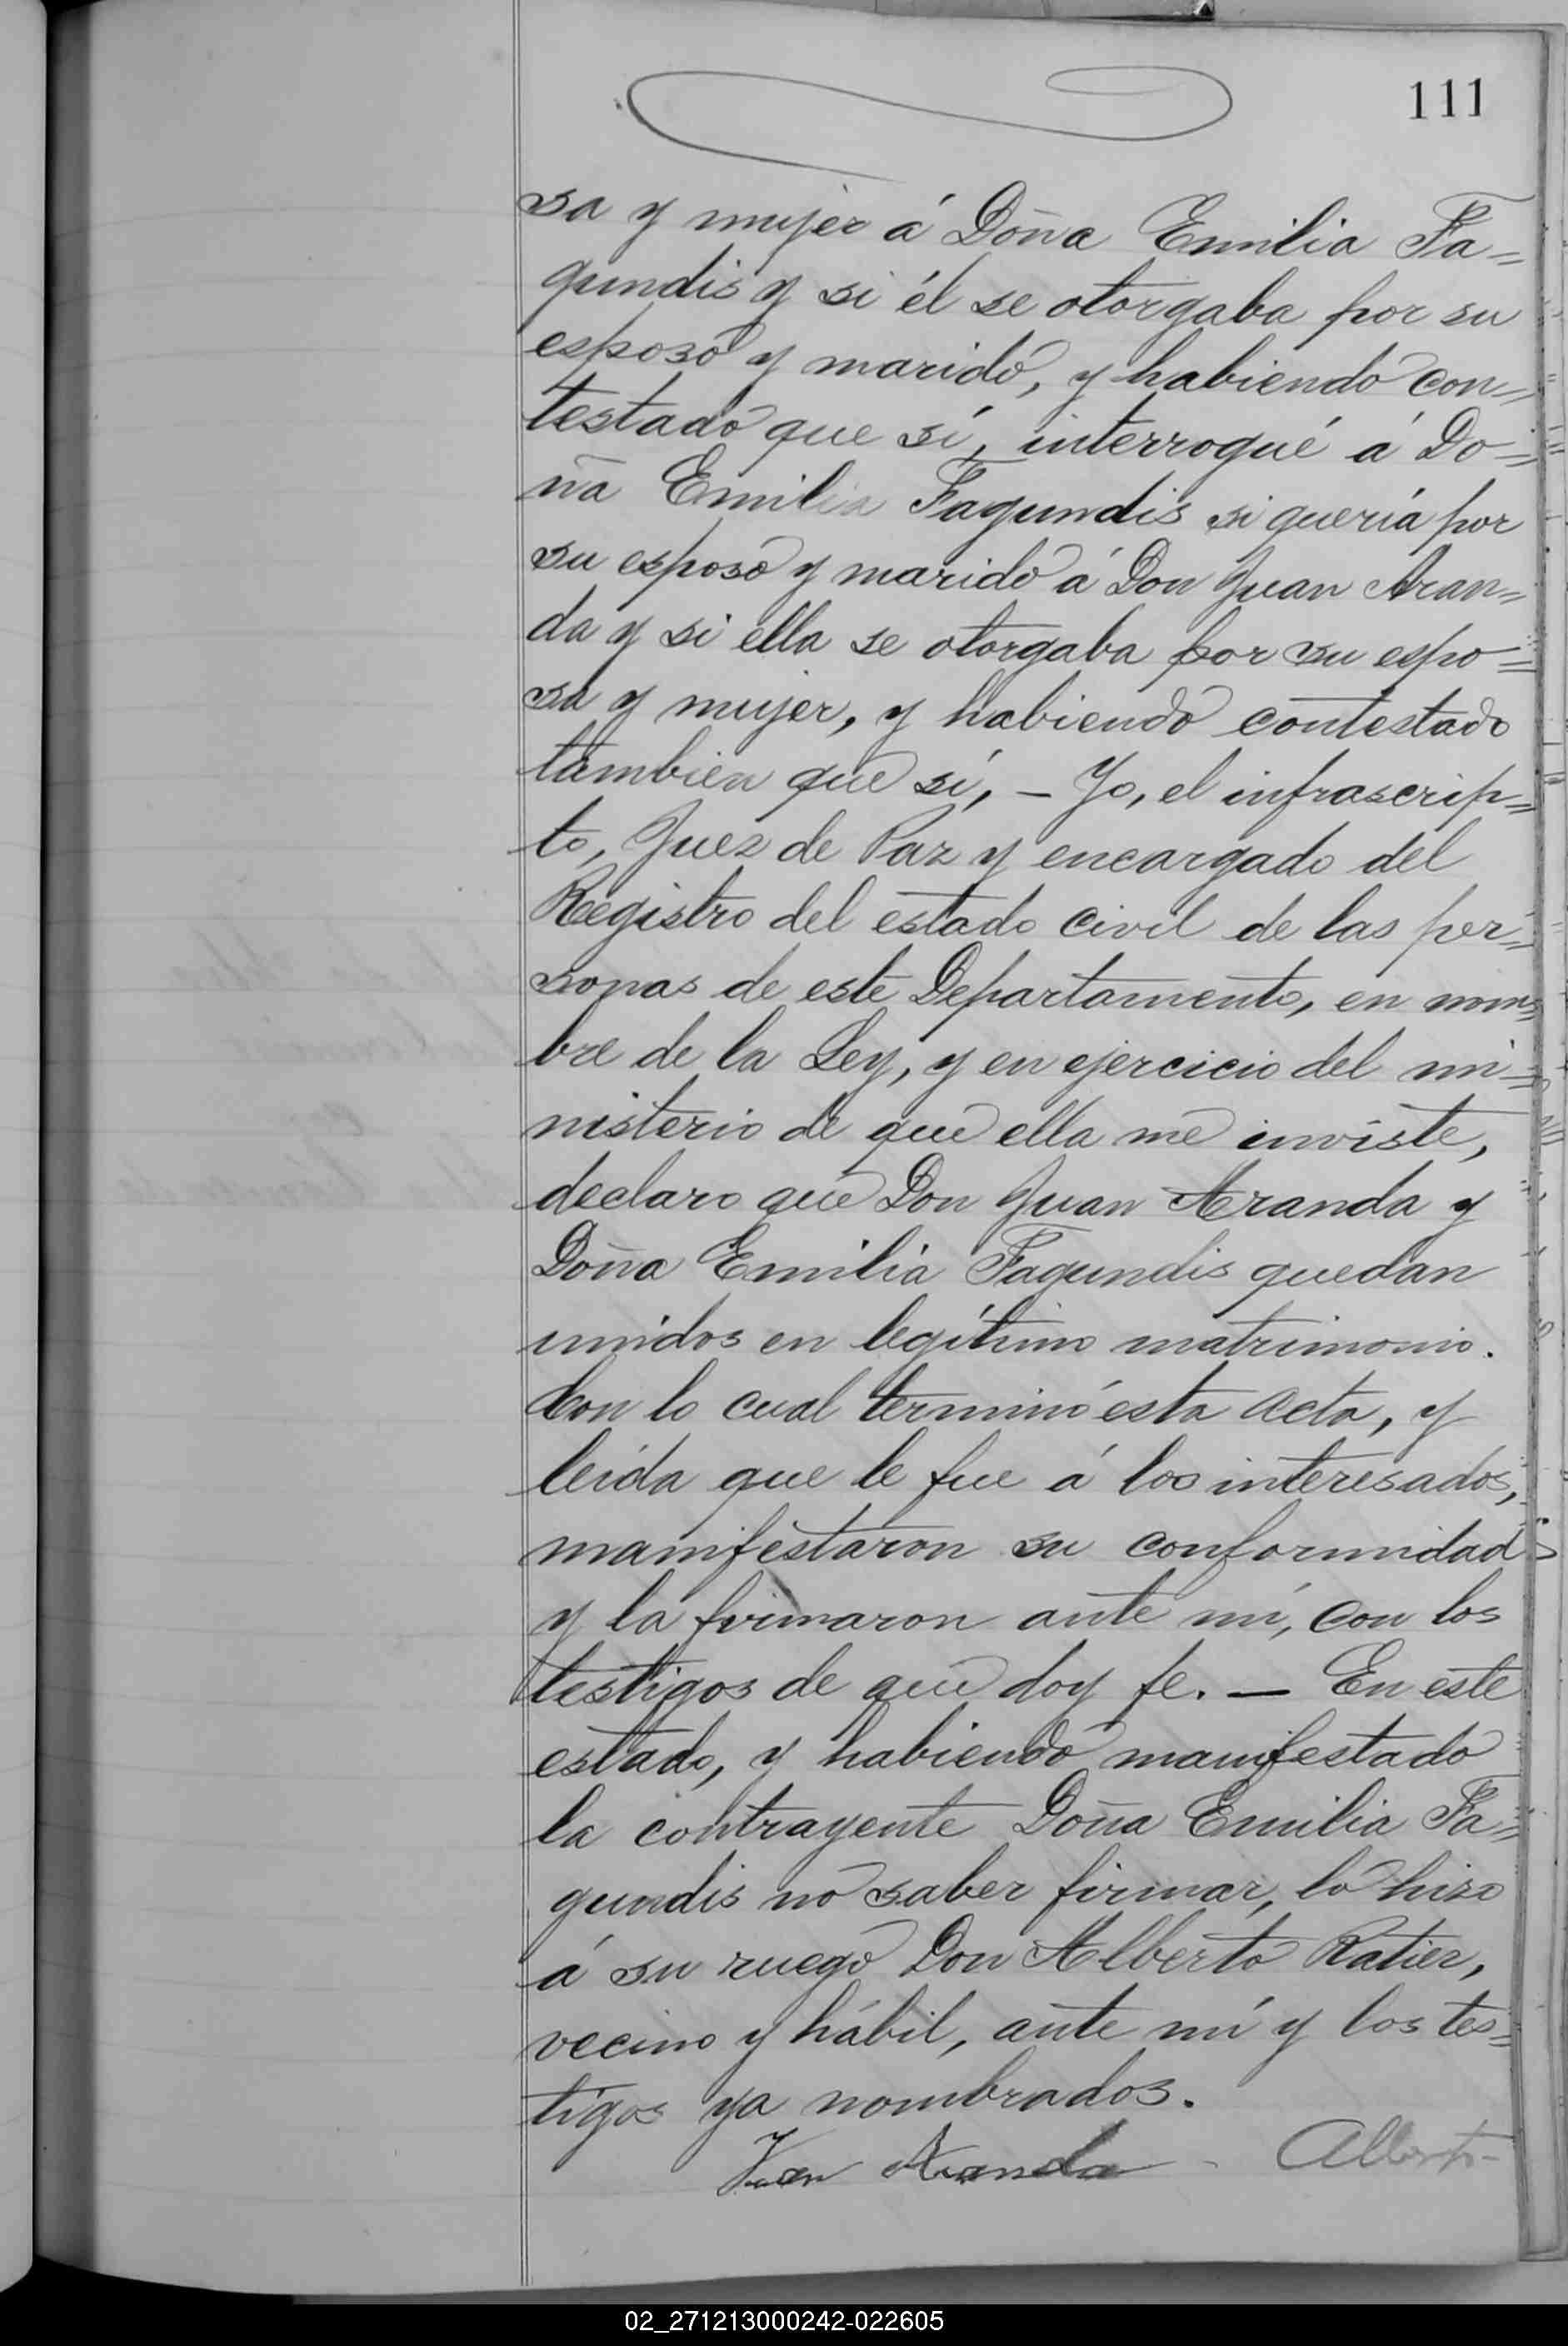 111
sa y mujer á Doña Emilia Fa=
gundis y si él se otorgaba por su
esposo y marido, y habiendo con=
testado que sí, interrogué á Do=
ña Emilia Fagundis si quería por
su esposo y marido á Don Juan Aran=
da y si ella se otorgaba por su espo=
sa y mujer, y habiendo contestado
tambien que sí, - Yo, el infrascrip=
to, Juez de Paz y encargado del
Registro del estado civil de las per=
sonas de este Departamento, en nom=
bre de la Ley, y en ejercicio del mi=
nisterio de que ella me inviste,
declaro que Don Juan Aranda y
Doña Emilia Fagundis quedan
unidos en legítimo matrimonio.
Con lo cual terminó esta acta, y
leída que le fue á los interesados,
manifestaron su conformidad
y la firmaron ante mí, con los
testigos de que doy fe. — En este
estado, y habiendo manifestado
la contrayente Doña Emilia Fa=
gundis no saber firmar, lo hizo
á su ruego Don Alberto Ratier,
vecino y hábil, ante mí y los tes=
tigos ya nombrados.
Juan Aranda - Alberto-
02_271213000242-022605